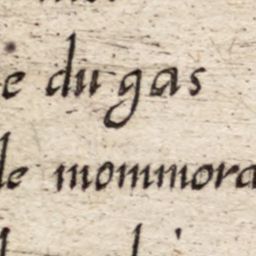 e dugas
de mommora